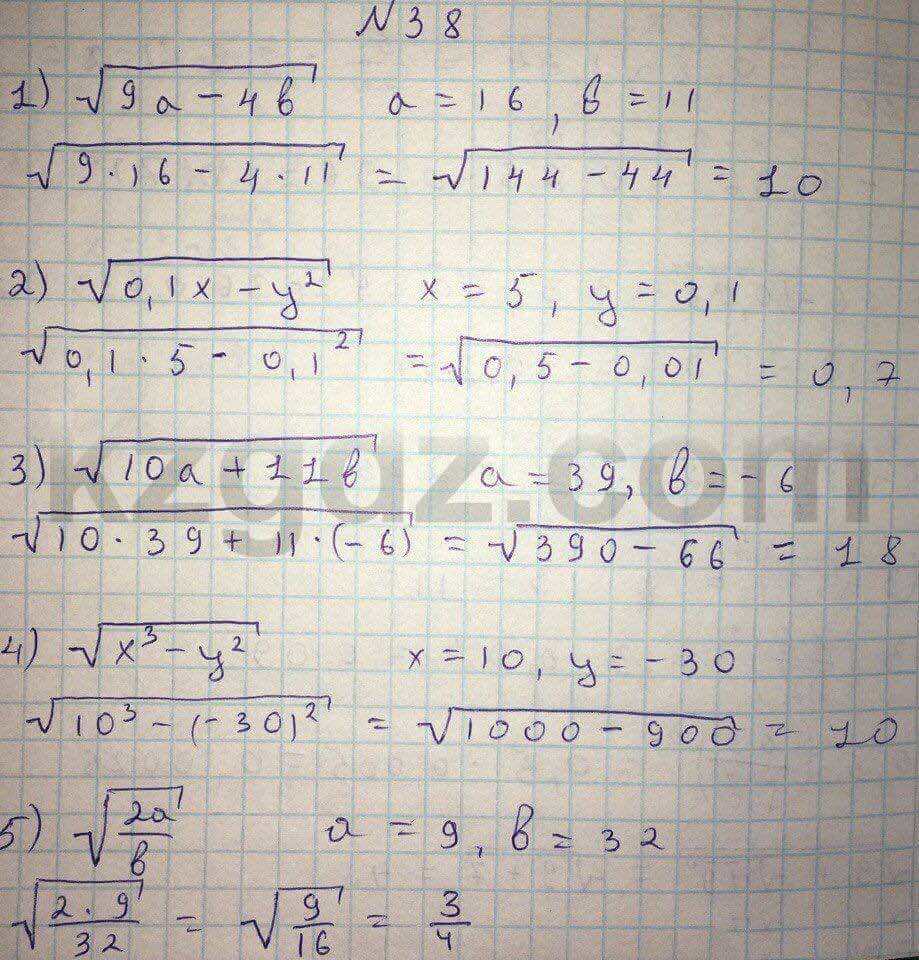 №38
1) √(9a − 4в) a = 16, в = 11
√(9·16 − 4·11) = √(144 − 44) = 10
2) √(0,1x − y²) x = 5, y = 0,1
√(0,1·5 − 0,1²) = √(0,5 − 0,01) = 0,7
3) √(10a + 11в) a = 39, в = −6
√(10·39 + 11·(−6)) = √(390 − 66) = 18
kzgdz.com
4) √(x³ − y²) x = 10, y = −30
√(10³ − (−30)²) = √(1000 − 900) = 10
5) √(2a/в) a = 9, в = 32
√(2·9/32) = √(9/16) = 3/4